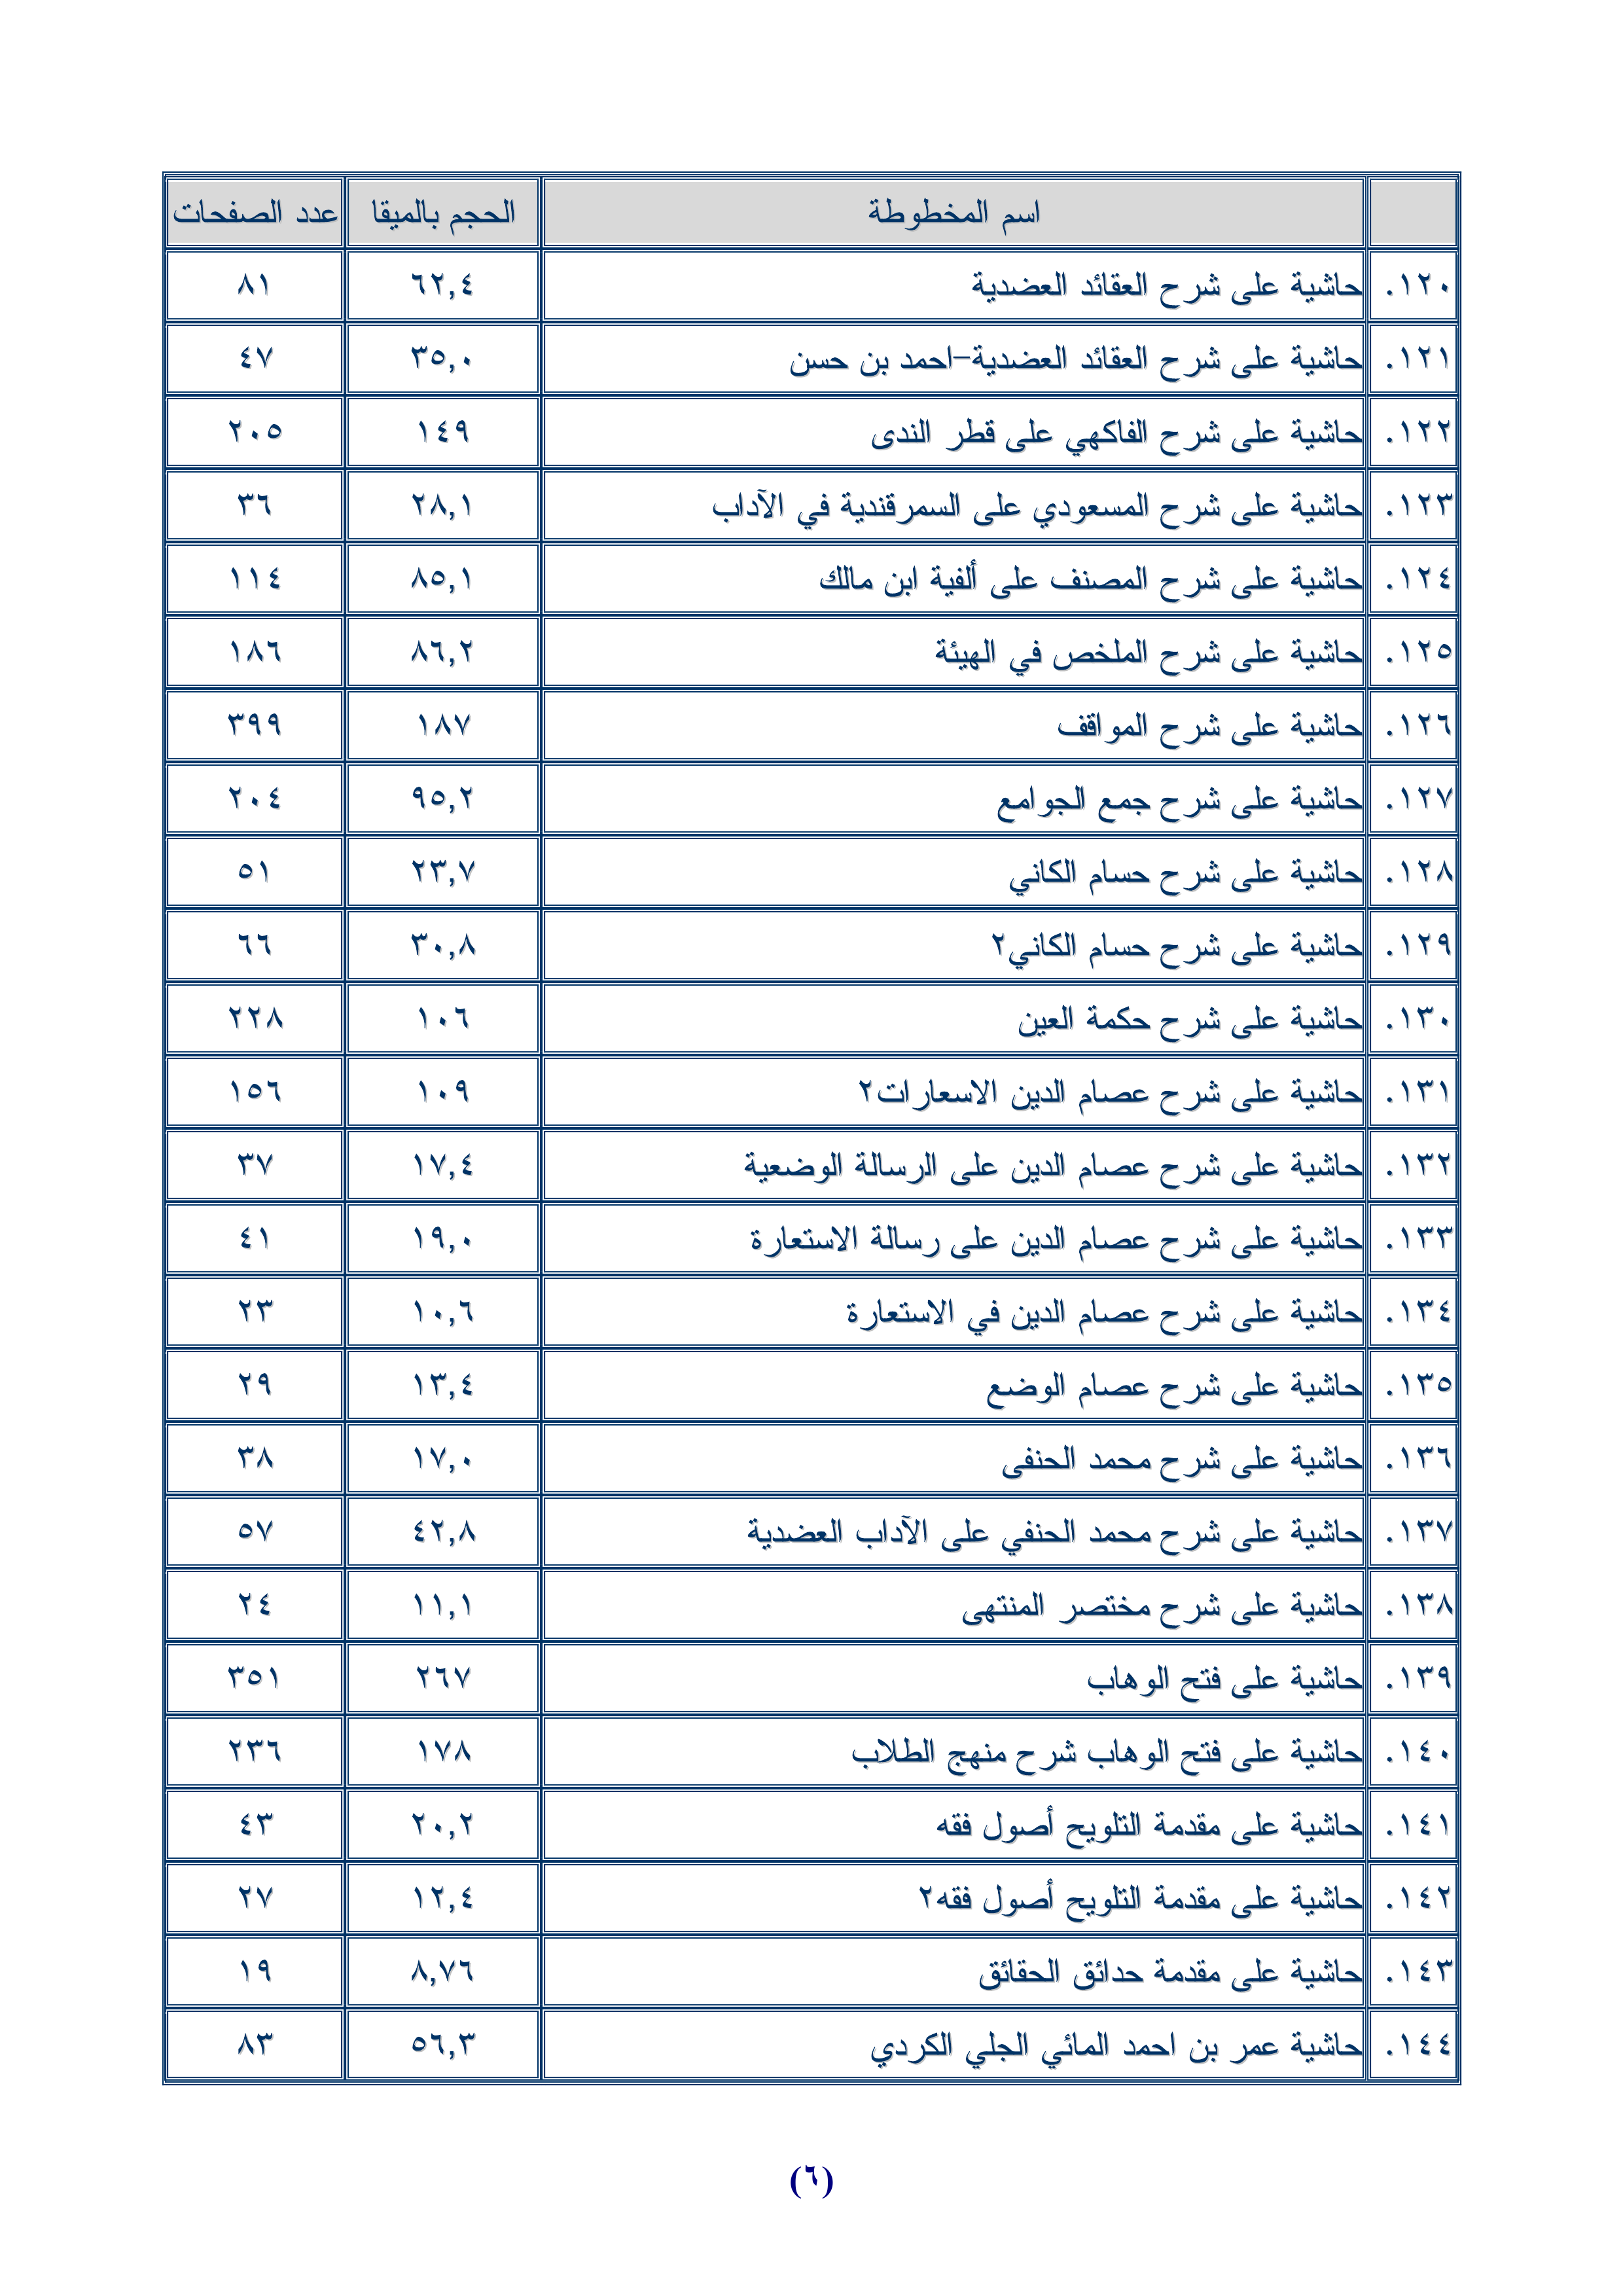 اسم المخطوطة الحجم بالميقا عدد الصفحات
١٢٠. حاشية على شرح العقائد العضدية ٦٢,٤ ٨١
١٢١. حاشية على شرح العقائد العضدية-احمد بن حسن ٣٥,٠ ٤٧
١٢٢. حاشية على شرح الفاكهي على قطر الندى ١٤٩ ٢٠٥
١٢٣. حاشية على شرح المسعودي على السمرقندية في الآداب ٢٨,١ ٣٦
١٢٤. حاشية على شرح المصنف على ألفية ابن مالك ٨٥,١ ١١٤
١٢٥. حاشية على شرح الملخص في الهيئة ٨٦,٢ ١٨٦
١٢٦. حاشية على شرح المواقف ١٨٧ ٣٩٩
١٢٧. حاشية على شرح جمع الجوامع ٩٥,٢ ٢٠٤
١٢٨. حاشية على شرح حسام الكاني ٢٣,٧ ٥١
١٢٩. حاشية على شرح حسام الكاني٢ ٣٠,٨ ٦٦
١٣٠. حاشية على شرح حكمة العين ١٠٦ ٢٢٨
١٣١. حاشية على شرح عصام الدين الاسعارات٢ ١٠٩ ١٥٦
١٣٢. حاشية على شرح عصام الدين على الرسالة الوضعية ١٧,٤ ٣٧
١٣٣. حاشية على شرح عصام الدين على رسالة الاستعارة ١٩,٠ ٤١
١٣٤. حاشية على شرح عصام الدين في الاستعارة ١٠,٦ ٢٣
١٣٥. حاشية على شرح عصام الوضع ١٣,٤ ٢٩
١٣٦. حاشية على شرح محمد الحنفى ١٧,٠ ٣٨
١٣٧. حاشية على شرح محمد الحنفي على الآداب العضدية ٤٢,٨ ٥٧
١٣٨. حاشية على شرح مختصر المنتهى ١١,١ ٢٤
١٣٩. حاشية على فتح الوهاب ٢٦٧ ٣٥١
١٤٠. حاشية على فتح الوهاب شرح منهج الطلاب ١٧٨ ٢٣٦
١٤١. حاشية على مقدمة التلويح أصول فقه ٢٠,٢ ٤٣
١٤٢. حاشية على مقدمة التلويح أصول فقه٢ ١٢,٤ ٢٧
١٤٣. حاشية على مقدمة حدائق الحقائق ٨,٧٦ ١٩
١٤٤. حاشية عمر بن احمد المائي الجلي الكردي ٥٦,٣ ٨٣
(٦)